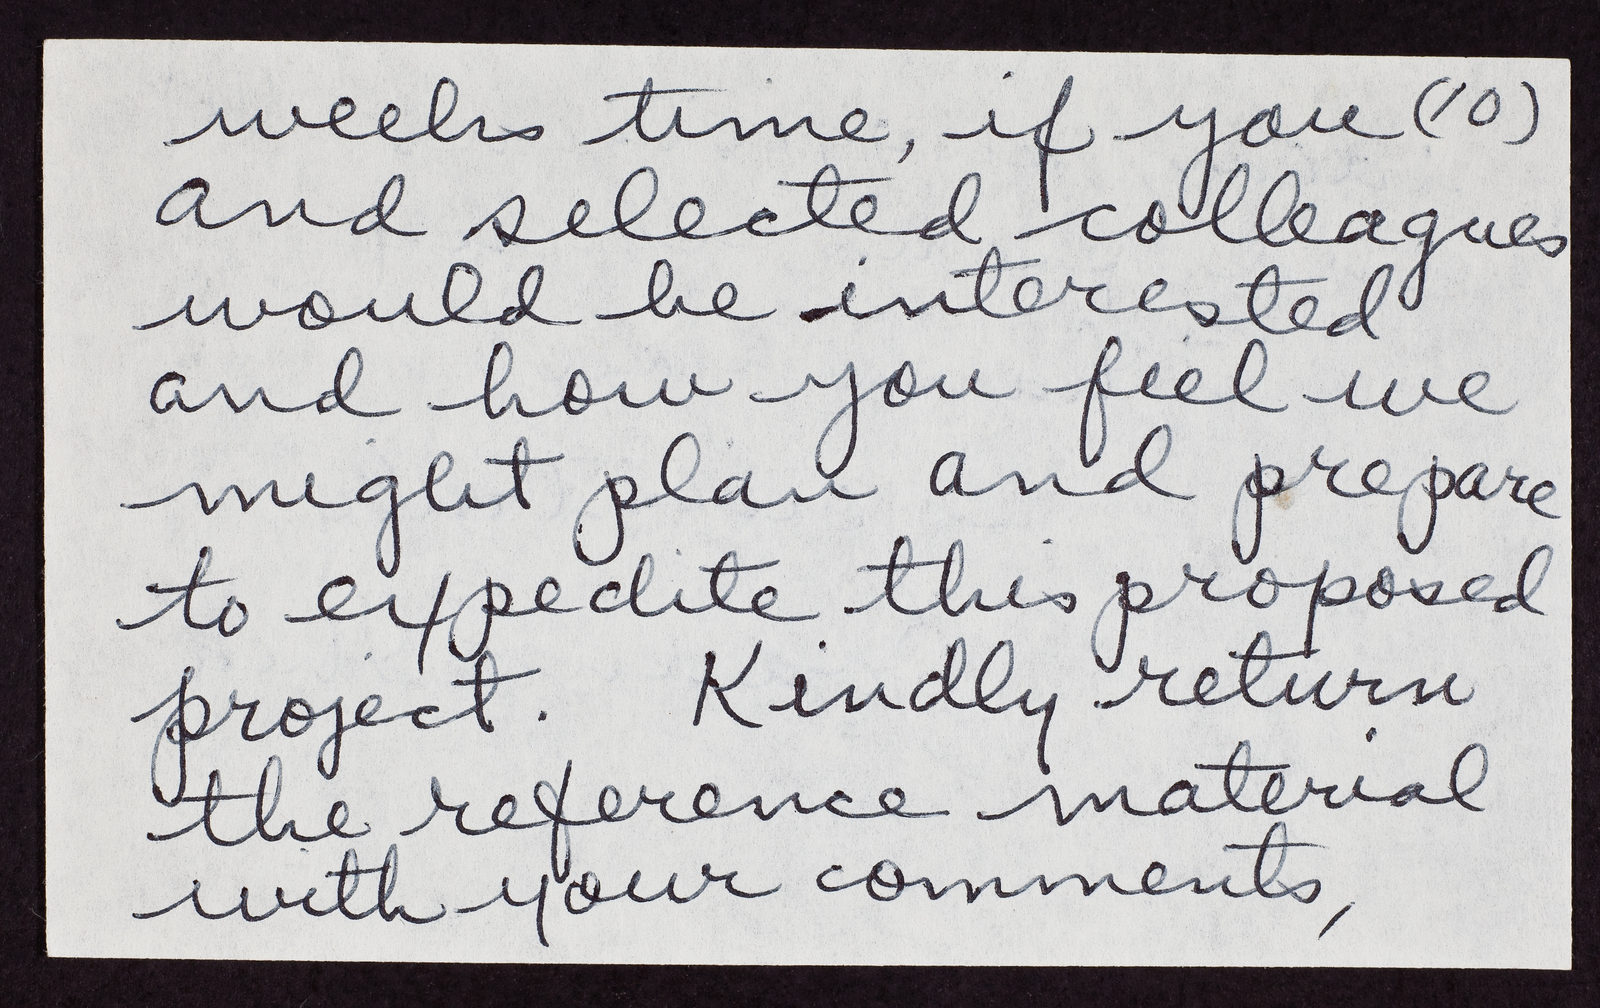 weeks time, if you (10)
and selected colleagues
would be interested
and how you feel we
might plan and prepare
to expedite this proposed
project. Kindly return
the reference material
with your comments,